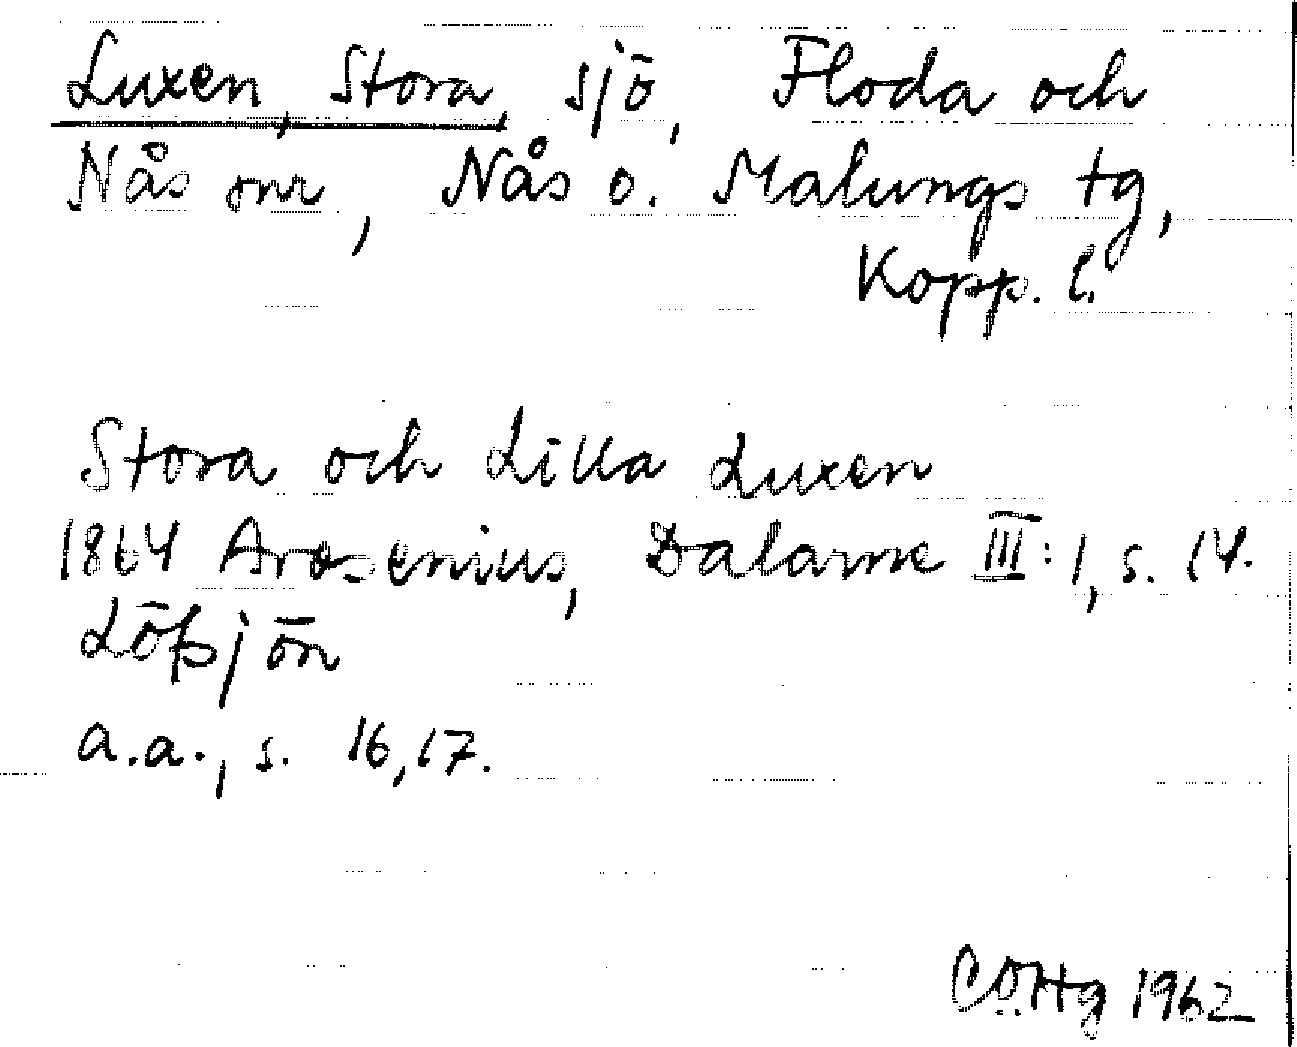 Luxen, Stora, sjö, Floda och
Nås snr, Nås o. Malungs tg,
Kopp. l.
Stora och Lilla Luxen
1864 Arosenius, Dalarne III:1, s. 14.
Lößjön
a.a., s. 16,17.
CÖHg 1962